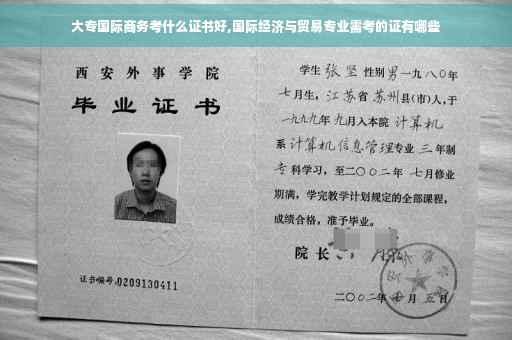 大专国际商务考什么证书好,国际经济与贸易专业需考的证有哪些
西安外事学院
毕业证书
证书编号:0209130411
学生 张坚 性别 男 一九八〇年
七月生, 江苏省 苏州县(市)人,于
一九九九年 九月入本院 计算机
系 计算机信息管理专业 三 年制
专 科学习, 至二〇〇二年 七月修业
期满, 学完教学计划规定的全部课程,
成绩合格, 准予毕业。
院长
二〇〇二年 七 月 五 日